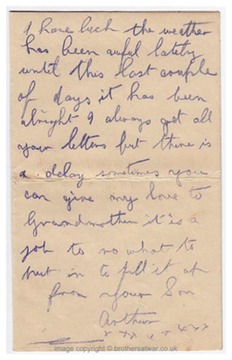 I have luck the weather
has been awful lately
until this last couple
of days it has been
alright I always get all
your letters but there is
a delay sometimes you
can give my love to
Grandmother it is a
job to no what to
put in to fill it up
from your Son
Arthur
image copyright © brothersatwar.co.uk